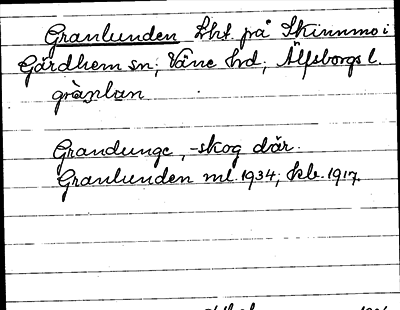 Granlunden Lht. på Skinnmo i
Gärdhem sn; Väne hd; Älfsborgs l.
grànlun
Grandunge, -skog där.
Granlunden ml. 1934; kb. 1917.